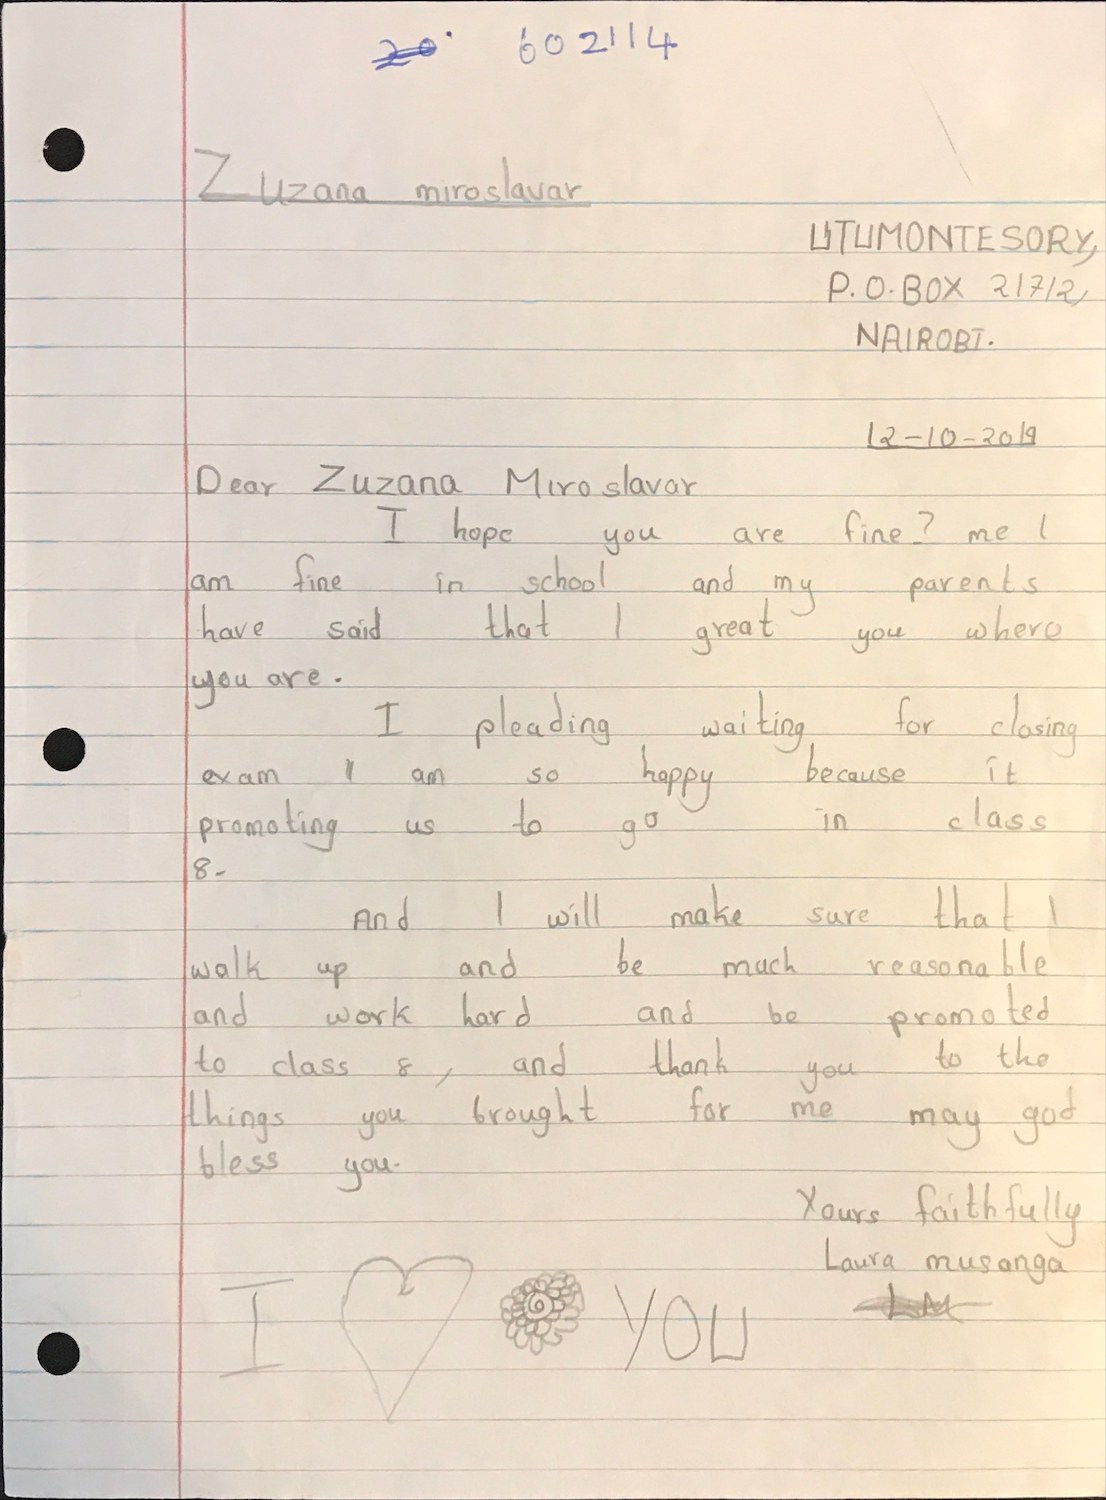 602114
Zuzana miroslavar
UTUMONTESORY,
P.O.BOX 21712,
NAIROBI.
12-10-2019
Dear Zuzana Miroslavar
I hope you are fine? me I
am fine in school and my parents
have said that I great you where
you are.
I pleading waiting for closing
exam I am so happy because it
promoting us to go in class
8-
And I will make sure that I
walk up and be much reasonable
and work hard and be promoted
to class 8, and thank you to the
things you brought for me may god
bless you.
Yours faithfully
Laura musanga
I YOU